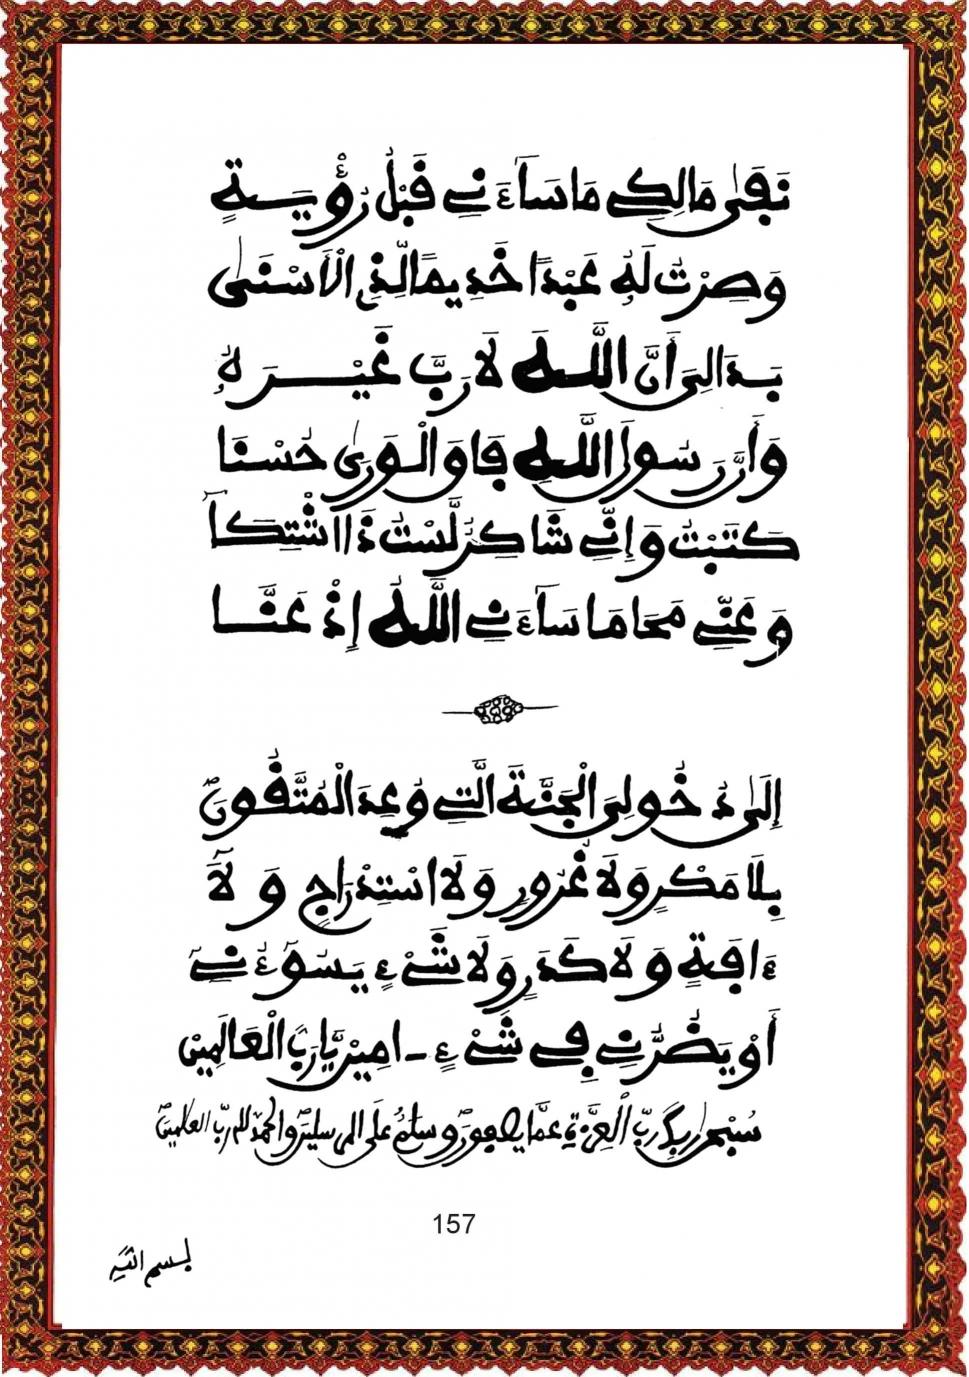 نَفَىٰ مَالِكِي مَا سَآءَنِي قَبْلُ رُؤْيَةٍ
وَصِرْتُ لَهُ عَبْدًا خَدِيمًا لِّذِي الْأَسْنَىٰ
بَدَا لِيَ أَنَّ اللَّهَ لَا رَبَّ غَيْرَهُ
وَأَنَّ رَسُولَ اللَّهِ فَاقَ الْوَرَىٰ حُسْنَا
كَتَبْتُ وَإِنِّي شَاكِرٌ لَّسْتُ ذَا اشْتِكَآ
وَعَنِّي مَحَا مَا سَآءَنِي اللَّهُ إِذْ عَنَّا
إِلَىٰ دُخُولِيَ الْجَنَّةَ الَّتِي وُعِدَ الْمُتَّقُونَ
بِلَا مَكْرٍ وَلَا غُرُورٍ وَلَا اسْتِدْرَاجٍ وَلَآ
ءَافَةٍ وَلَا كَدَرٍ وَلَا شَيْءٍ يَسُوٓءُنِيٓ
أَوْ يَضُرُّنِي فِي شَيْءٍ ـ ءَامِينَ يَا رَبَّ الْعَالَمِينَ
سُبْحَٰنَ رَبِّكَ رَبِّ الْعِزَّةِ عَمَّا يَصِفُونَ وَسَلَٰمٌ عَلَى الْمُرْسَلِينَ وَالْحَمْدُ لِلَّهِ رَبِّ الْعَٰلَمِينَ
157
بسم الله